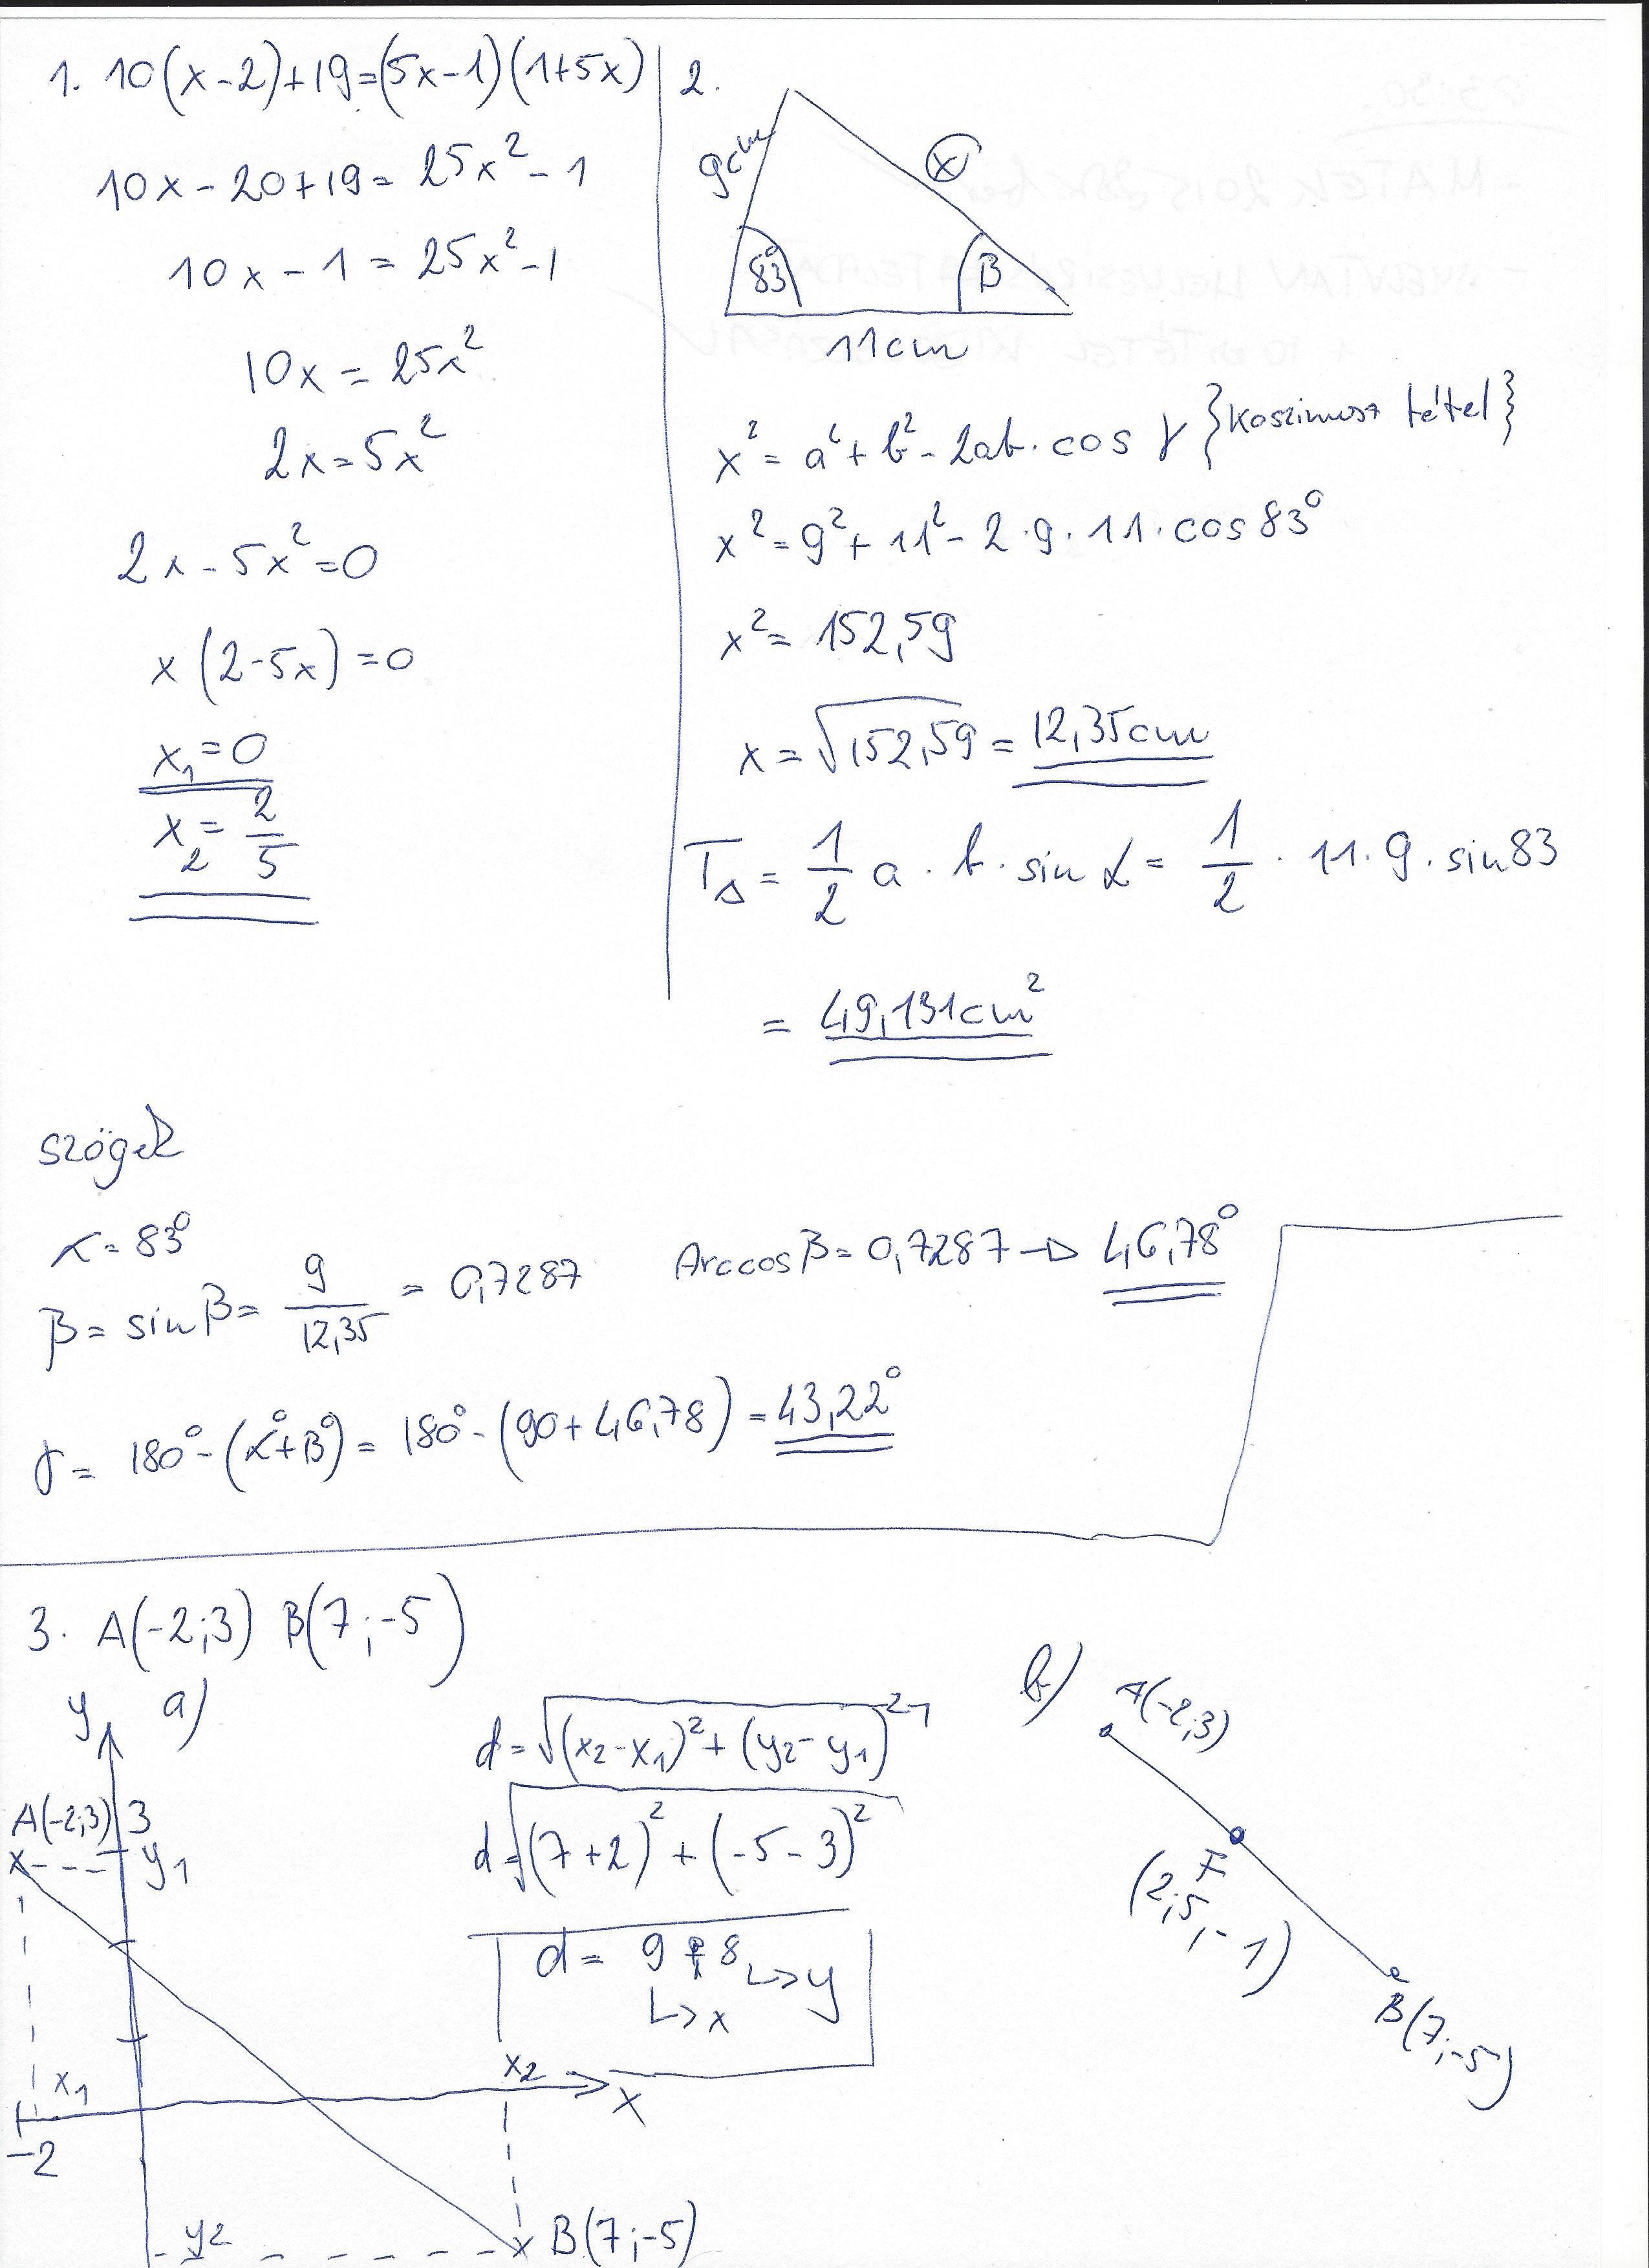 1. 10(x-2)+19=(5x-1)(1+5x)
10x-20+19=25x²-1
10x-1=25x²-1
10x=25x²
2x=5x²
2x-5x²=0
x(2-5x)=0
x₁=0
x₂=2/5
2.
9cm
x
83°
B
11cm
x²=a²+b²-2ab·cos γ {koszinusz tétel}
x²=9²+11²-2·9·11·cos 83°
x²=152,59
x=√152,59=12,35cm
T△=1/2 a·b·sin α=1/2·11·9·sin 83
=49,131cm²
szögek
α=83°
β=sin β=9/12,35=0,7287 Arccos β=0,7287→46,78°
γ=180°-(α°+β°)=180°-(90+46,78)=43,22°
3. A(-2;3) B(7;-5)
a)
y
A(-2;3) 3
y₁
x₁
-2
x₂
x
y₂
B(7;-5)
d=√(x₂-x₁)²+(y₂-y₁)²
d=√(7+2)²+(-5-3)²
d= 9 8 →y
→x
b)
A(-2;3)
F
(2,5;-1)
B(7;-5)